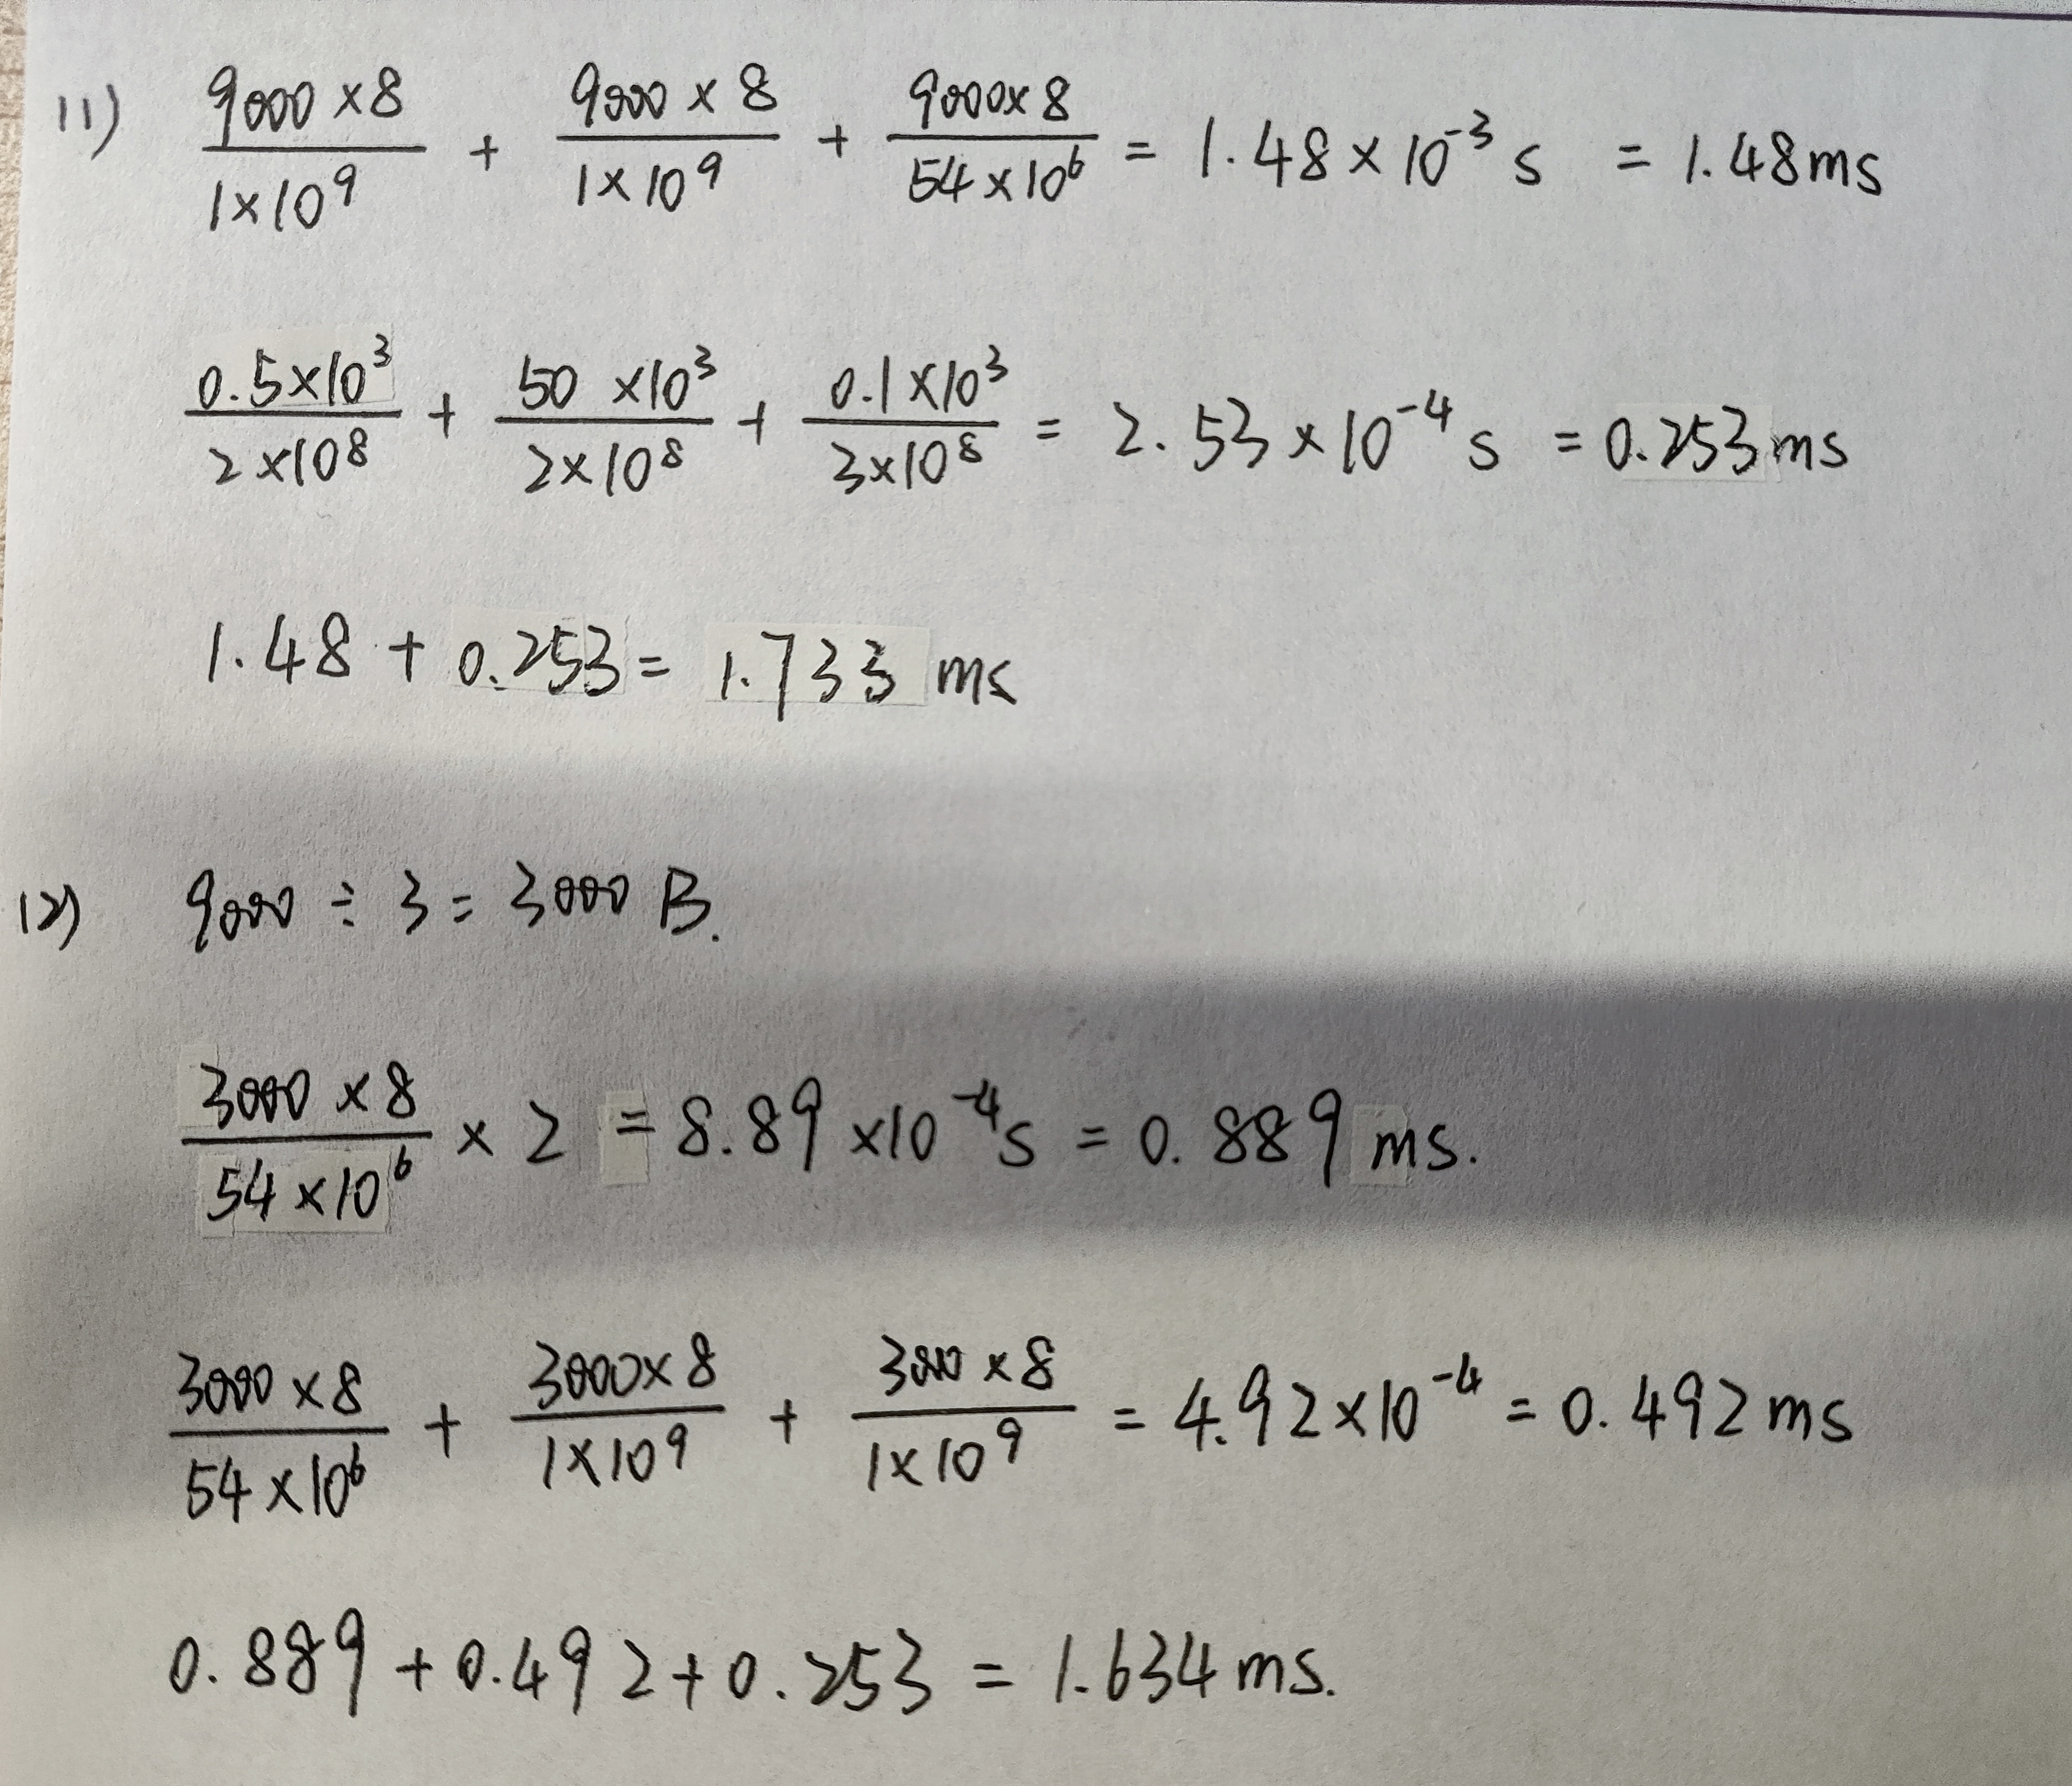 (1) (9000×8)/(1×10^9) + (9000×8)/(1×10^9) + (9000×8)/(54×10^6) = 1.48×10^-3 s = 1.48ms
(0.5×10^3)/(2×10^8) + (50×10^3)/(2×10^8) + (0.1×10^3)/(3×10^8) = 2.53×10^-4 s = 0.253ms
1.48 + 0.253 = 1.733 ms
(2) 9000 ÷ 3 = 3000 B.
(3000×8)/(54×10^6) × 2 = 8.89×10^-4 s = 0.889 ms.
(3000×8)/(54×10^6) + (3000×8)/(1×10^9) + (3000×8)/(1×10^9) = 4.92×10^-4 = 0.492 ms
0.889 + 0.492 + 0.253 = 1.634 ms.